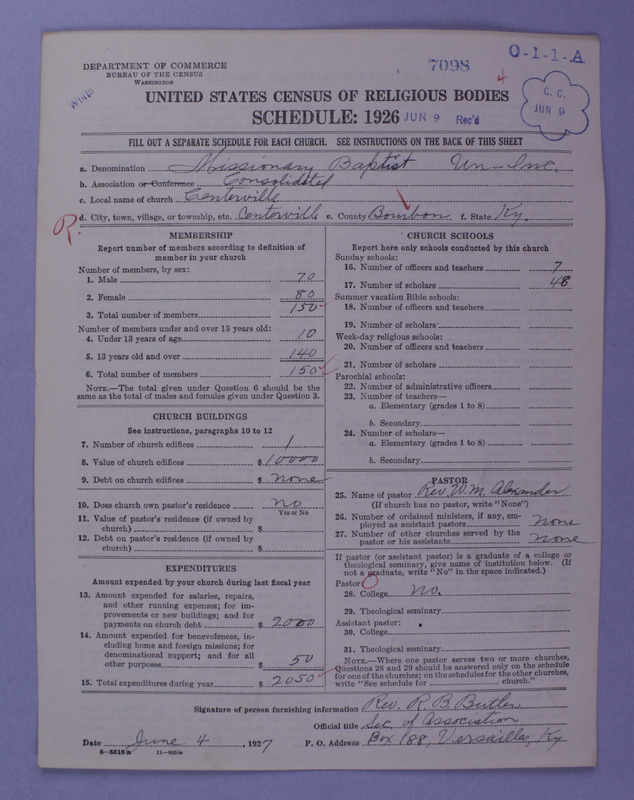 DEPARTMENT OF COMMERCE
BUREAU OF THE CENSUS
WASHINGTON
7098
4
O-I-1-A
White
C. C.
JUN 9
UNITED STATES CENSUS OF RELIGIOUS BODIES
SCHEDULE: 1926 JUN 9 Rec'd
FILL OUT A SEPARATE SCHEDULE FOR EACH CHURCH. SEE INSTRUCTIONS ON THE BACK OF THIS SHEET
a. Denomination Missionary Baptist Un-Inc.
b. Association or Conference Consolidated
c. Local name of church Centerville
R. d. City, town, village, or township, etc. Centerville e. County Bourbon f. State Ky.
MEMBERSHIP
Report number of members according to definition of
member in your church
Number of members, by sex:
1. Male 70
2. Female 80
3. Total number of members 150
Number of members under and over 13 years old:
4. Under 13 years of age 10
5. 13 years old and over 140
6. Total number of members 150
NOTE.—The total given under Question 6 should be the
same as the total of males and females given under Question 3.
CHURCH BUILDINGS
See instructions, paragraphs 10 to 12
7. Number of church edifices 1
8. Value of church edifices $ 10000
9. Debt on church edifices $ none
10. Does church own pastor's residence? no
Yes or No
11. Value of pastor's residence (if owned by
church) $
12. Debt on pastor's residence (if owned by
church) $
EXPENDITURES
Amount expended by your church during last fiscal year
13. Amount expended for salaries, repairs,
and other running expenses; for im-
provements or new buildings; and for
payments on church debt $ 2000
14. Amount expended for benevolences, in-
cluding home and foreign missions; for
denominational support; and for all
other purposes $ 50
15. Total expenditures during year $ 2050
CHURCH SCHOOLS
Report here only schools conducted by this church
Sunday schools:
16. Number of officers and teachers 7
17. Number of scholars 48
Summer vacation Bible schools:
18. Number of officers and teachers
19. Number of scholars
Week-day religious schools:
20. Number of officers and teachers
21. Number of scholars
Parochial schools:
22. Number of administrative officers
23. Number of teachers—
a. Elementary (grades 1 to 8)
b. Secondary
24. Number of scholars—
a. Elementary (grades 1 to 8)
b. Secondary
PASTOR
25. Name of pastor Rev. W. M. Alexander
(If church has no pastor, write "None")
26. Number of ordained ministers, if any, em-
ployed as assistant pastors none
27. Number of other churches served by the
pastor or his assistants none
If pastor (or assistant pastor) is a graduate of a college or
theological seminary, give name of institution below. (If
not a graduate, write "No" in the space indicated.)
Pastor:
28. College no.
29. Theological seminary
Assistant pastor:
30. College
31. Theological seminary
NOTE.—Where one pastor serves two or more churches,
Questions 28 and 29 should be answered only on the schedule
for one of the churches; on the schedules for the other churches,
write "See schedule for church."
Signature of person furnishing information Rev. R. B. Butler
Official title Sec. of Association
Date June 4, 1927 P. O. Address Box 188, Versailles, Ky
8—5518a